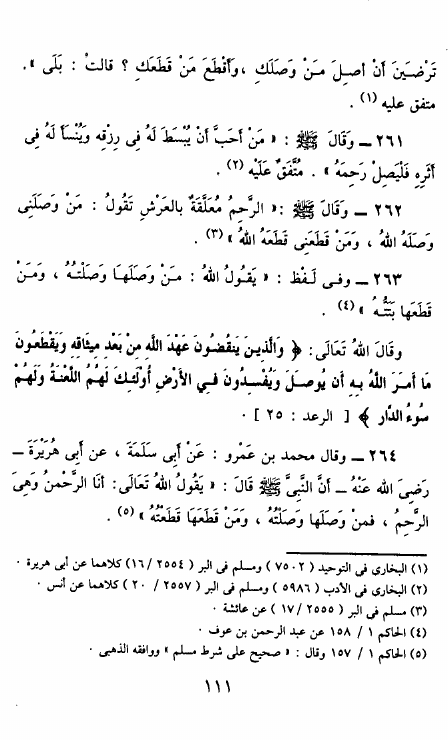 تَرْضَيَنَ أَنْ أصِلَ مَـنْ وَصَلَكِ ،وَأَقْطَعَ مَنْ قَطَعَكِ ؟ قالتْ : بَلَى » .
متفق عليه (١) .
٢٦١ ــ وَقَالَ ﷺ : « مَنْ أَحَبَّ أَنْ يُبْسَطَ لَهُ فِى رِزْقِه وَيُنْسَأَ لَهُ فِى
أَثَرِهِ فَلْيَصِلْ رَحِمَهُ » . مُتَّفَقٌ عَلَيْه (٢) .
٢٦٢ ــ وَقَالَ ﷺ :« الرَّحِمُ مُعَلَّقَةٌ بالعَرْشِ تَقُولُ : مَنْ وَصَلَنِى
وَصَلَهُ اللهُ ، وَمَنْ قَطَعَنِى قَطَعَهُ اللهُ » (٣) .
٢٦٣ ــ وفـى لَـفْظ : « يَـقُولُ اللهُ : مَـنْ وَصَلَهَـا وَصَلْتُـهُ ، وَمَـنْ
قَطَعَهَا بَتَتُّـهُ » (٤) .
وقَالَ اللهُ تَعَالَى: ﴿ وَالَّذِيـنَ يَنقُضُـونَ عَهْدَ اللَّهِ مِنْ بَعْدِ مِيثَاقِهِ وَيَقْطَعُونَ
مَا أَمَـرَ اللَّهُ بِهِ أَن يُوصَـلَ وَيُفْسِدُونَ فِـي الأَرْضِ أُوْلَئِـكَ لَهُمُ اللَّعْنَةُ وَلَهُمْ
سُوءُ الدَّارِ ﴾ [ الرعد : ٢٥ ] .
٢٦٤ ــ وقال محمد بن عَمْرو : عَنْ أَبِى سَلَمَةَ ، عن أَبِى هُرَيْرَةَ ــ
رَضِىَ اللهُ عَنْهُ ــ أَنَّ النَّبِىَّ ﷺ قَالَ : « يَقُولُ اللهُ تَعَالَى: أنَا الرَّحْمنُ وَهِىَ
الرَّحِمُ ، فمنْ وَصَلَها وَصَلْتُهُ ، وَمَنْ قَطَعَهَا قَطَعْتُهُ » (٥) .
(١) البخارى فى التوحيد ( ٧٥٠٢ ) ومسلم فى البر ( ٢٥٥٤ /١٦) كلاهما عن أبى هريرة .
(٢) البخارى فى الأدب ( ٥٩٨٦ ) ومسلم فى البر ( ٢٥٥٧ / ٢٠ ) كلاهما عن أنس .
(٣) مسلم فى البر ( ٢٥٥٥ /١٧ ) عن عائشة .
(٤) الحاكم ١ / ١٥٨ عن عبد الرحمن بن عوف .
(٥) الحاكم ١ / ١٥٧ وقال : « صحيح على شرط مسلم » ووافقه الذهبى .
١١١